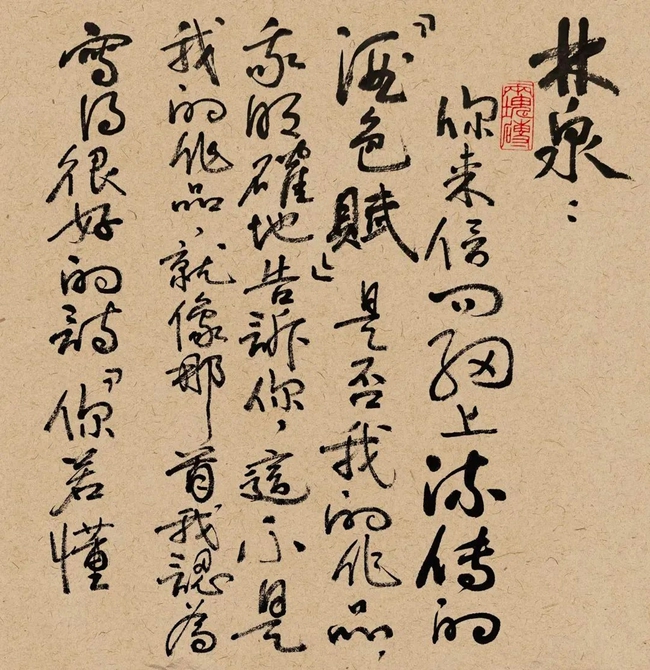 林泉：
你来信问網上流传的
『酒色賦』是否我的作品，
我明確地告訴你，這不是
我的作品，就像那首我認為
寫得很好的詩『你若懂